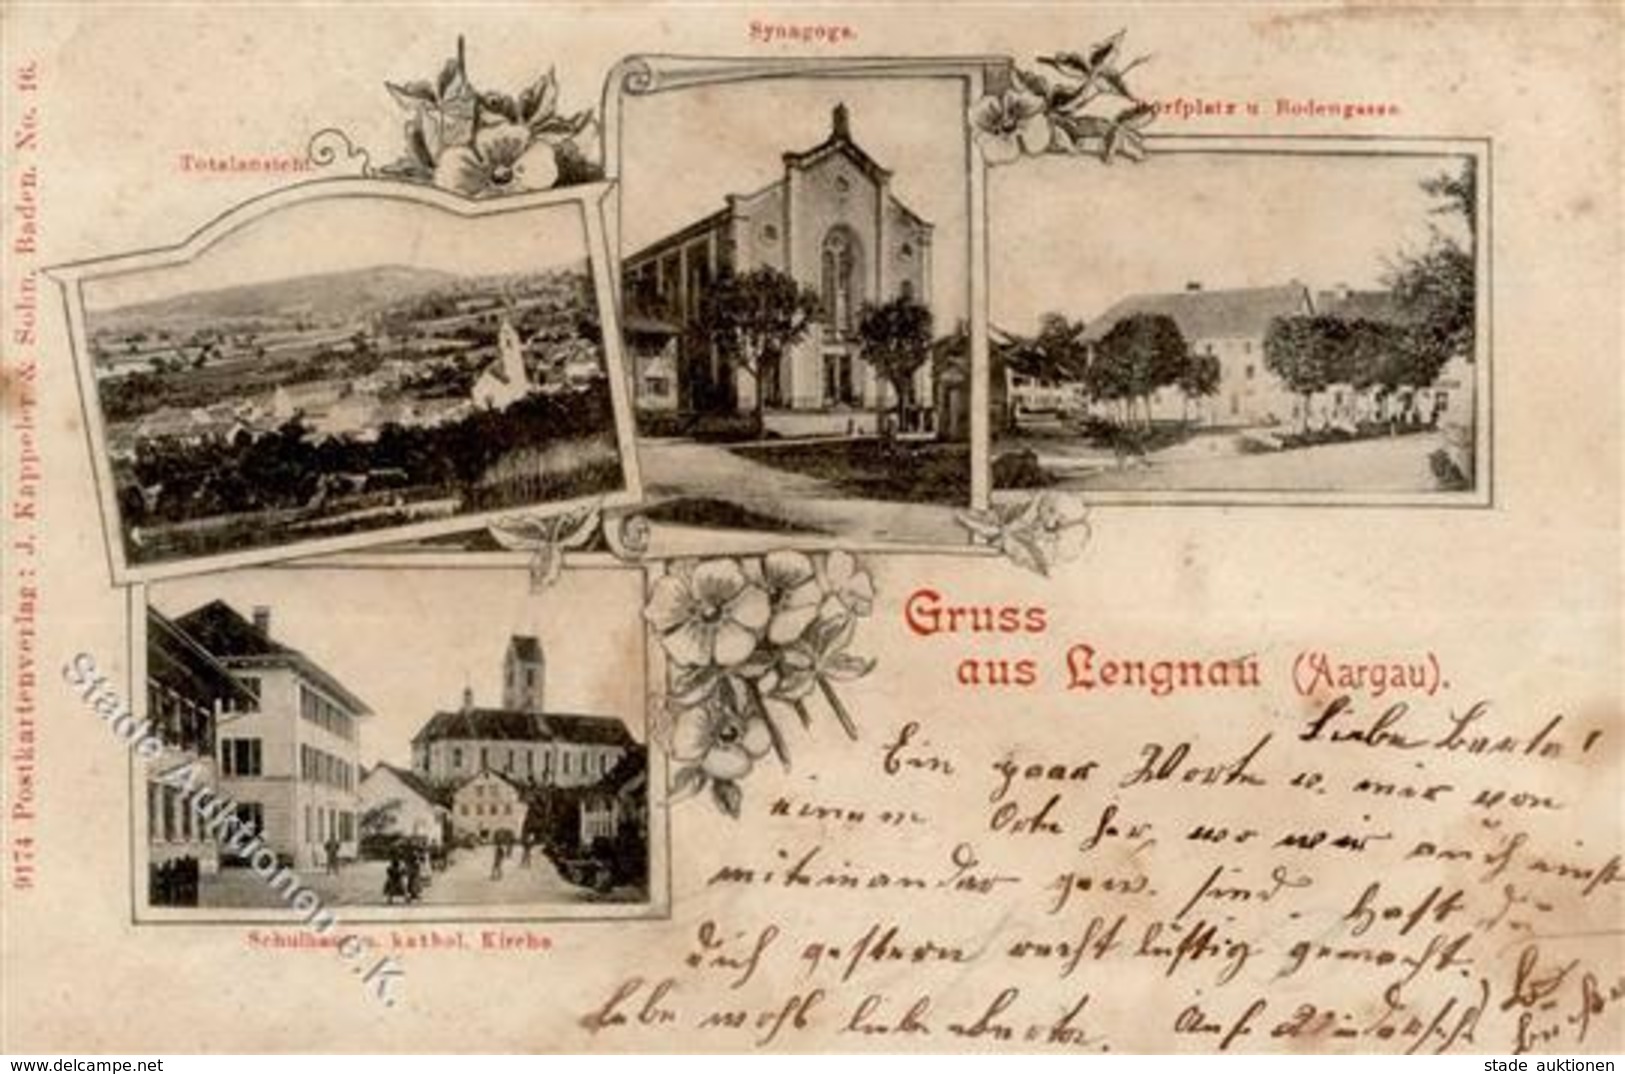 Synagoge.
Dorfplatz u Bodengasse.
Totalansicht.
9174 Postkartenverlag: J. Kappeler & Sohn, Baden. No. 16.
Gruss
aus Lengnau (Aargau).
Schulhaus u. kathol. Kirche
Liebe
Ein paar Worte v. mir von
einem Orte her, wo wir auch einst
miteinander gew. sind. Hast du
dich gestern recht lustig gemacht.
Lebe wohl liebe Berta. Auf Wiederseh
Stade Auktionen e.K.
www.delcampe.net
stade auktionen